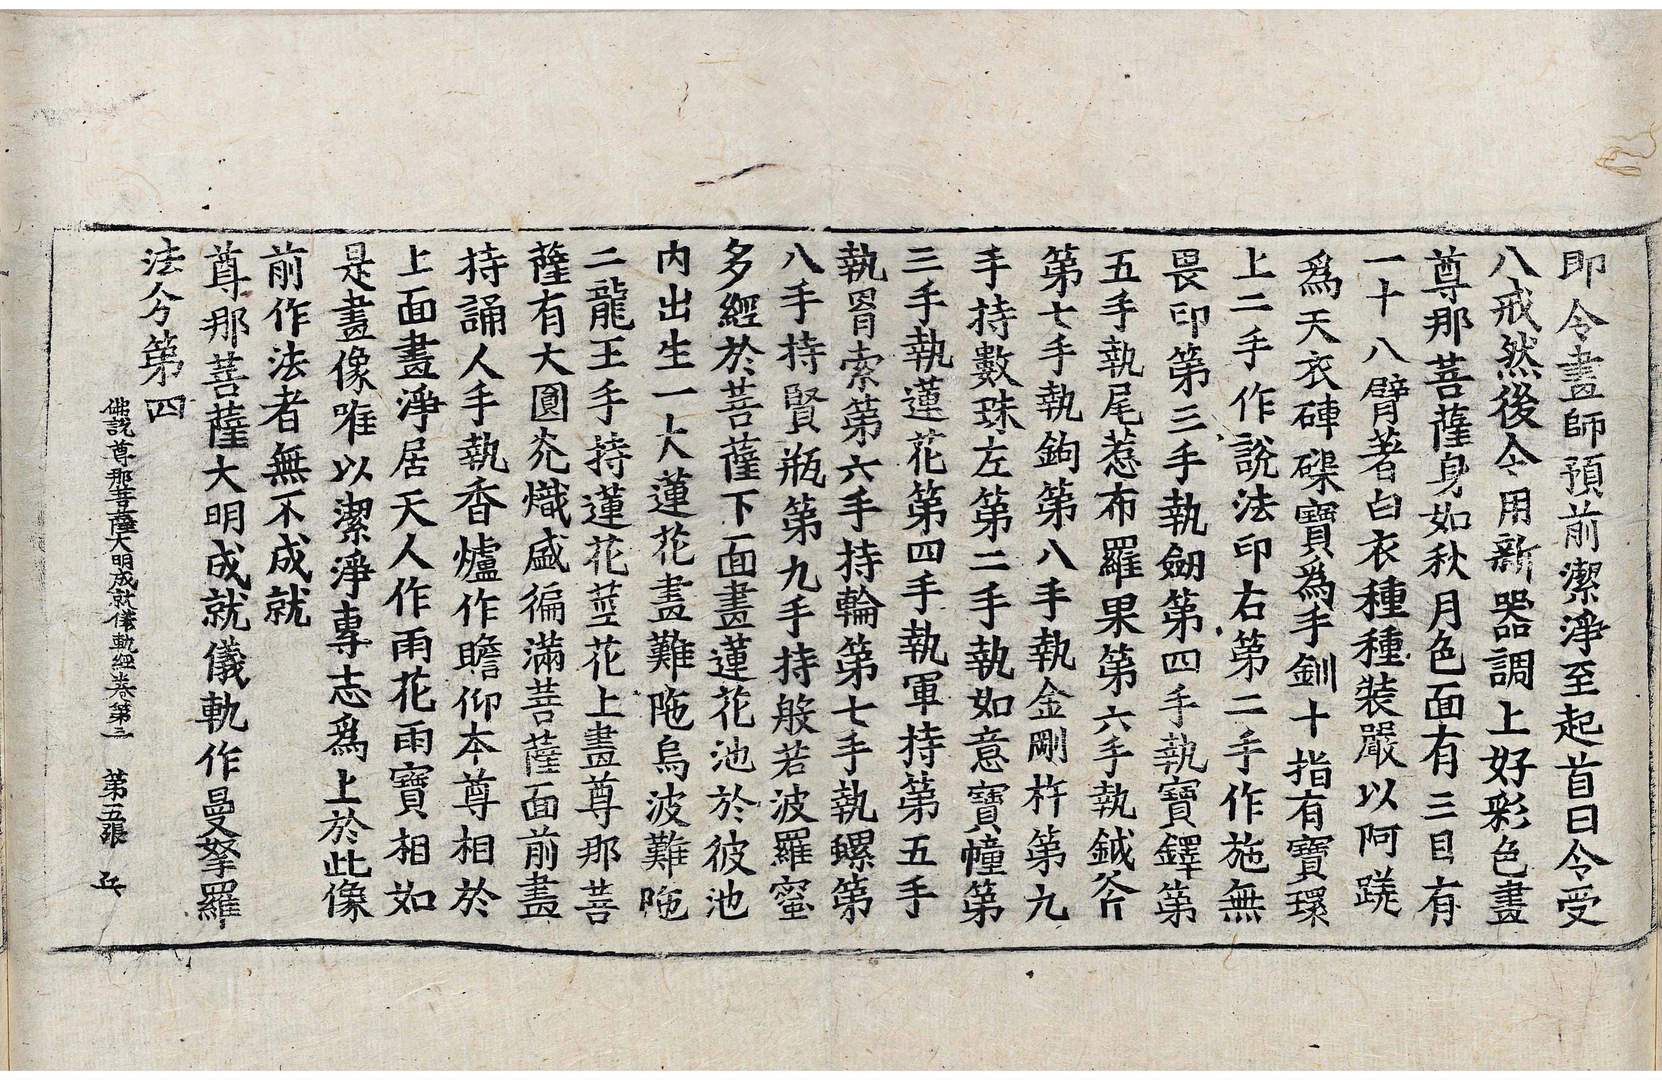 即令畫師預前潔淨至起首日令受
八戒然後令用新器調上好彩色畫
尊那菩薩身如秋月色面有三目有
一十八臂著白衣種種裝嚴以阿蹉
爲天衣硨磲寶爲手釧十指有寶環
上二手作說法印右第二手作施無
畏印第三手執劒第四手執寶鐸第
五手執尾惹布羅果第六手執鉞斧
第七手執鉤第八手執金剛杵第九
手持數珠左第二手執如意寶幢第
三手執蓮花第四手執軍持第五手
執罥索第六手持輪第七手執螺第
八手持賢瓶第九手持般若波羅蜜
多經於菩薩下面畫蓮花池於彼池
內出生一大蓮花畫難陁烏波難陁
二龍王手持蓮花莖花上畫尊那菩
薩有大圓光熾盛徧滿菩薩面前畫
持誦人手執香爐作瞻仰本尊相於
上面畫淨居天人作雨花雨寶相如
是畫像唯以潔淨專志爲上於此像
前作法者無不成就
尊那菩薩大明成就儀軌作曼拏羅
法分第四
佛說尊那菩薩大明成就儀軌經卷第三 第五張 兵